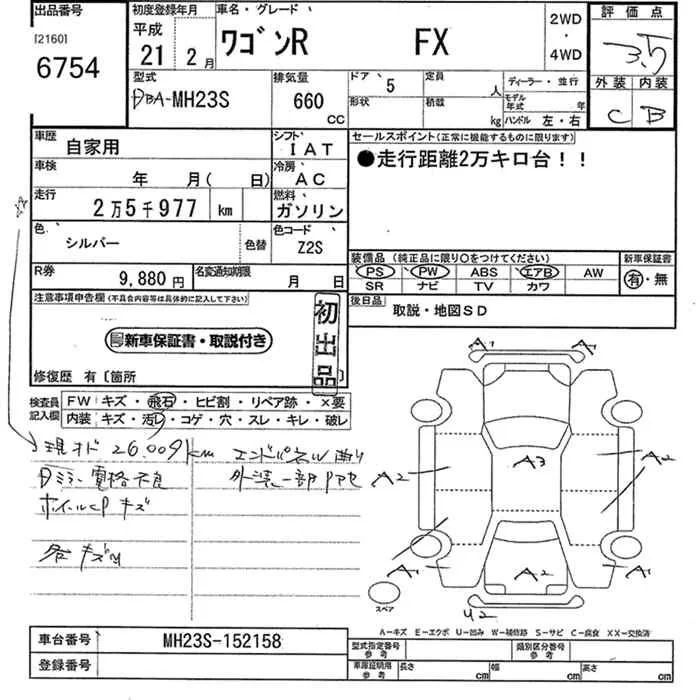 出品番号
[2160]
6754
初度登録年月
平成
21 2 月
車名・グレード
ワゴンR FX
2WD
・
4WD
評価点
3.5
外装 内装
C B
型式
DBA-MH23S
排気量
660
CC
ドア 5
形状
定員 人
積載 kg
ディーラー・並行
モデル年式 年
ハンドル 左・右
車歴 自家用
シフト IAT
車検 年 月( 日)
冷房 AC
走行 2万5千977 km
燃料 ガソリン
色 シルバー 色替
色コード Z2S
R券 9,880円
名変通知期限 月 日
セールスポイント(正常に機能するものに限ります)
●走行距離2万キロ台!!
装備品(純正品に限り○をつけてください)
PS PW ABS エアB AW
SR ナビ TV カワ
新車保証書
有・無
後日品 取説・地図SD
注意事項申告欄(不具合内容等は具体的に記入して下さい)
新車保証書・取説付き
初出品
修復歴 有〔箇所
検査員記入欄
FW キズ・飛石・ヒビ割・リペア跡・×要
内装 キズ・汚レ・コゲ・穴・スレ・キレ・破レ
現オド 26.009km
Dミラー電格不良
ホイールCPキズ
各キズ凹
エンドパネル曲り
外装一部
A1 A1
A2 A3 A2
A1 A2 A1
U2
スペア
A-キズ E-エクボ U-凹み W-補修跡 S-サビ C-腐食 XX-交換済
車台番号 MH23S-152158
登録番号
型式指定番号 参考
類別区分番号 参考
車庫証明用 参考
長さ cm 幅 cm 高さ cm